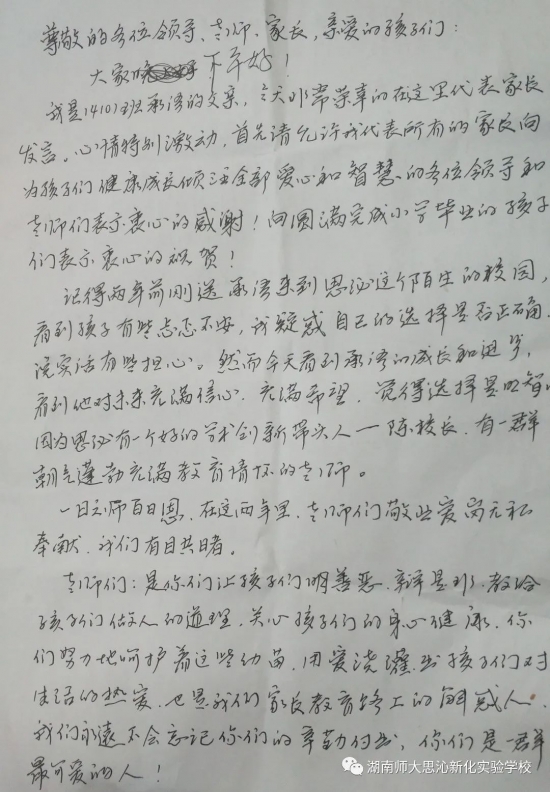 尊敬的各位领导、老师、家长,亲爱的孩子们:
大家下午好!
我是1410班承语的父亲,今天非常荣幸的在这里代表家长
发言。心情特别激动,首先请允许我代表所有的家长向
为孩子们健康成长倾注全部爱心和智慧的各位领导和
老师们表示衷心的感谢!向圆满完成小学毕业的孩子
们表示衷心的祝贺!
记得两年前刚送承语来到思沁这个陌生的校园,
看到孩子有些忐忑不安,我疑惑自己的选择是否正确.
说实话有些担心。然而今天看到承语的成长和进步,
看到他对未来充满信心.充满希望.觉得选择是明智的
因为思沁有一个好的学术创新带头人一陈校长.有一群
朝气蓬勃充满教育情怀的老师。
一日之师百日恩.在这两年里.老师们敬业爱岗无私
奉献.我们有目共睹。
老师们:是你们让孩子们明善恶.辩是非.教给
孩子们做人的道理.关心孩子们的身心健康.你
们努力地呵护着这些幼苗.用爱浇灌出孩子们对
生活的热爱.也是我们家长教育路上的解惑人.
我们永远不会忘记你们的辛勤付出,你们是一群
最可爱的人!
湖南师大思沁新化实验学校